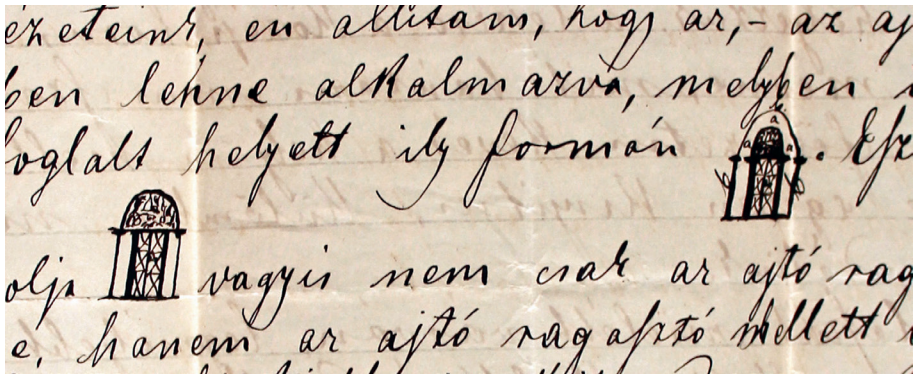 én állitám, hogy az,- az aj
ben lenne alkalmazva, melyben
foglalt helyett ily formán . Esz
vagyis nem csak az ajtó rag
e, hanem az ajtó ragasztó mellett